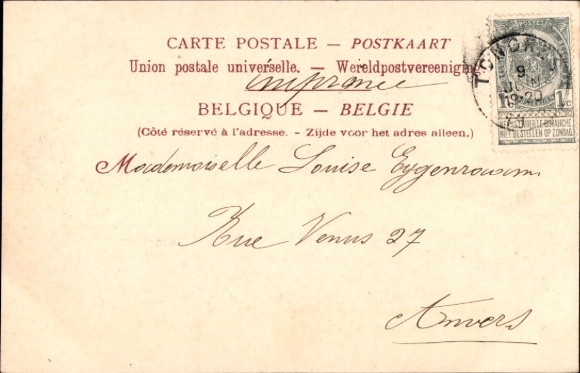 CARTE POSTALE — POSTKAART
Union postale universelle. — Wereldpostvereeniging
imprimé
BELGIQUE — BELGIE
(Côté réservé à l'adresse. - Zijde voor het adres alleen.)
Mademoiselle Louise
Rue Venus 27
Anvers
TONGRES
9
JUIN
1
NE PAS LIVRER LE DIMANCHE
NIET BESTELLEN OP ZONDAG